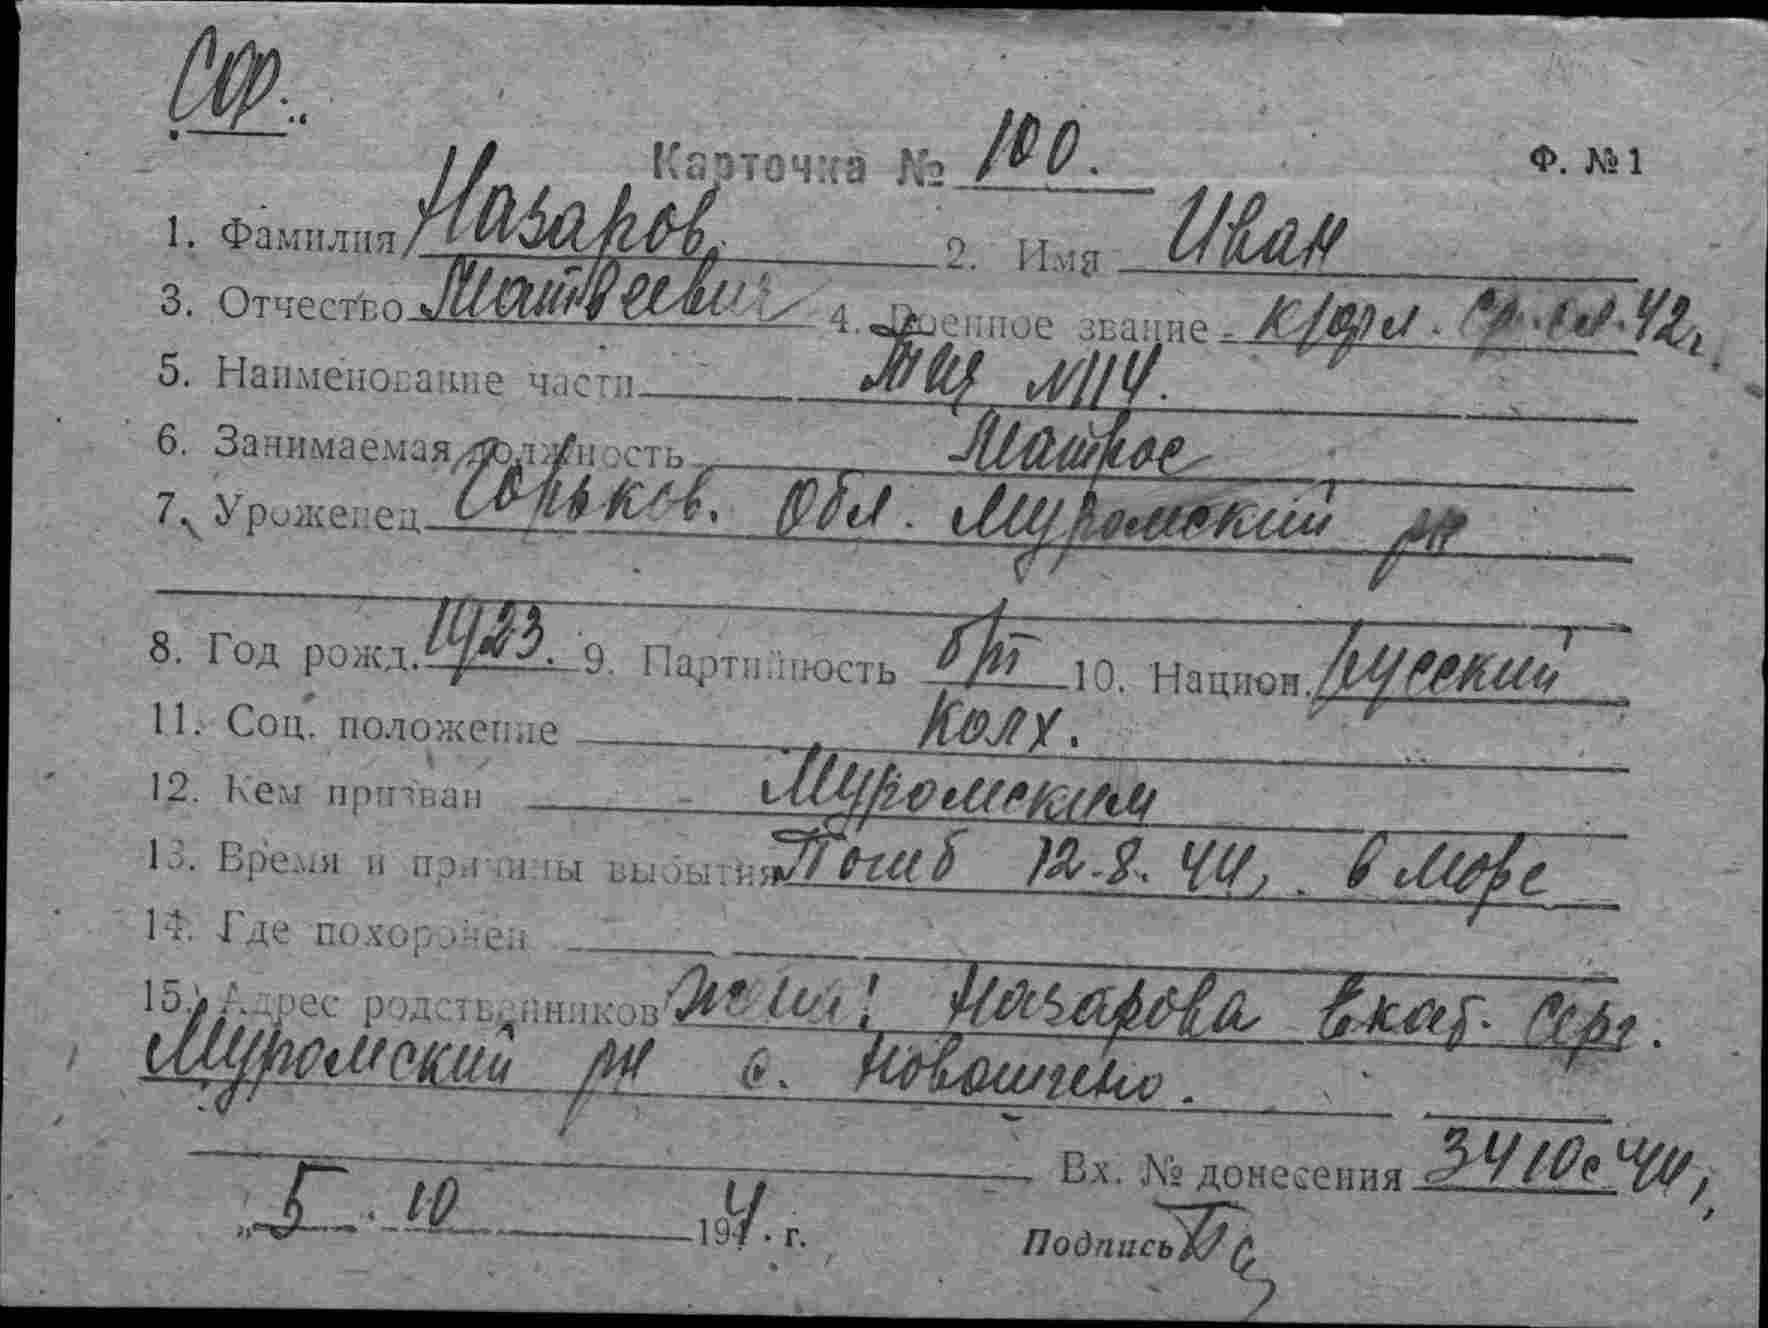 СФ.
Карточка № 100. Ф. №1
1. Фамилия Назаров 2. Имя Иван
3. Отчество Матвеевич 4. Военное звание к/фл. ср. сл. 42г.
5. Наименование части ТЩ №114.
6. Занимаемая должность Матрос
7. Уроженец Горьков. обл. Муромский рн
8. Год рожд. 1923. 9. Партийность б/п 10. Национ. русский
11. Соц. положение колх.
12. Кем призван Муромским
13. Время и причины выбытия Погиб 12.8.44, в море
14. Где похоронен
15. Адрес родственников Назарова Екат. Серг.
Муромский рн с.
Вх. № донесения 3410с 44,
„5 . 10 194 г.
Подпись